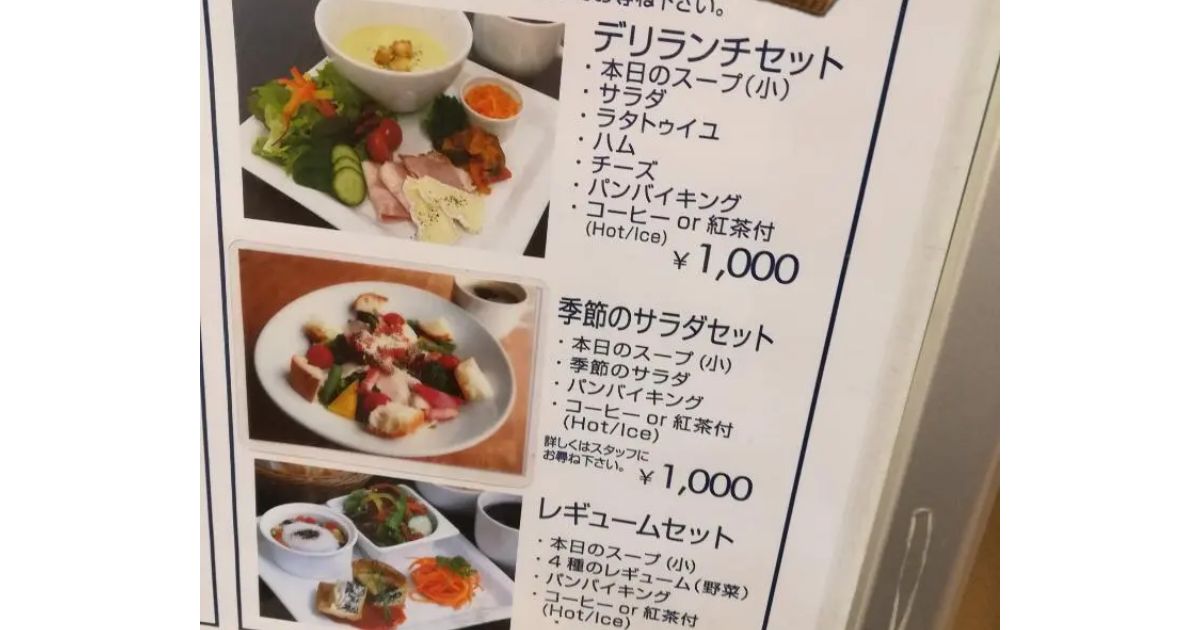 お尋ね下さい。
デリランチセット
・本日のスープ(小)
・サラダ
・ラタトゥイユ
・ハム
・チーズ
・パンバイキング
・コーヒー or 紅茶付
(Hot/Ice)
¥1,000
季節のサラダセット
・本日のスープ(小)
・季節のサラダ
・パンバイキング
・コーヒー or 紅茶付
(Hot/Ice)
詳しくはスタッフに
お尋ね下さい。
¥1,000
レギュームセット
・本日のスープ(小)
・4種のレギューム(野菜)
・パンバイキング
・コーヒー or 紅茶付
(Hot/Ice)